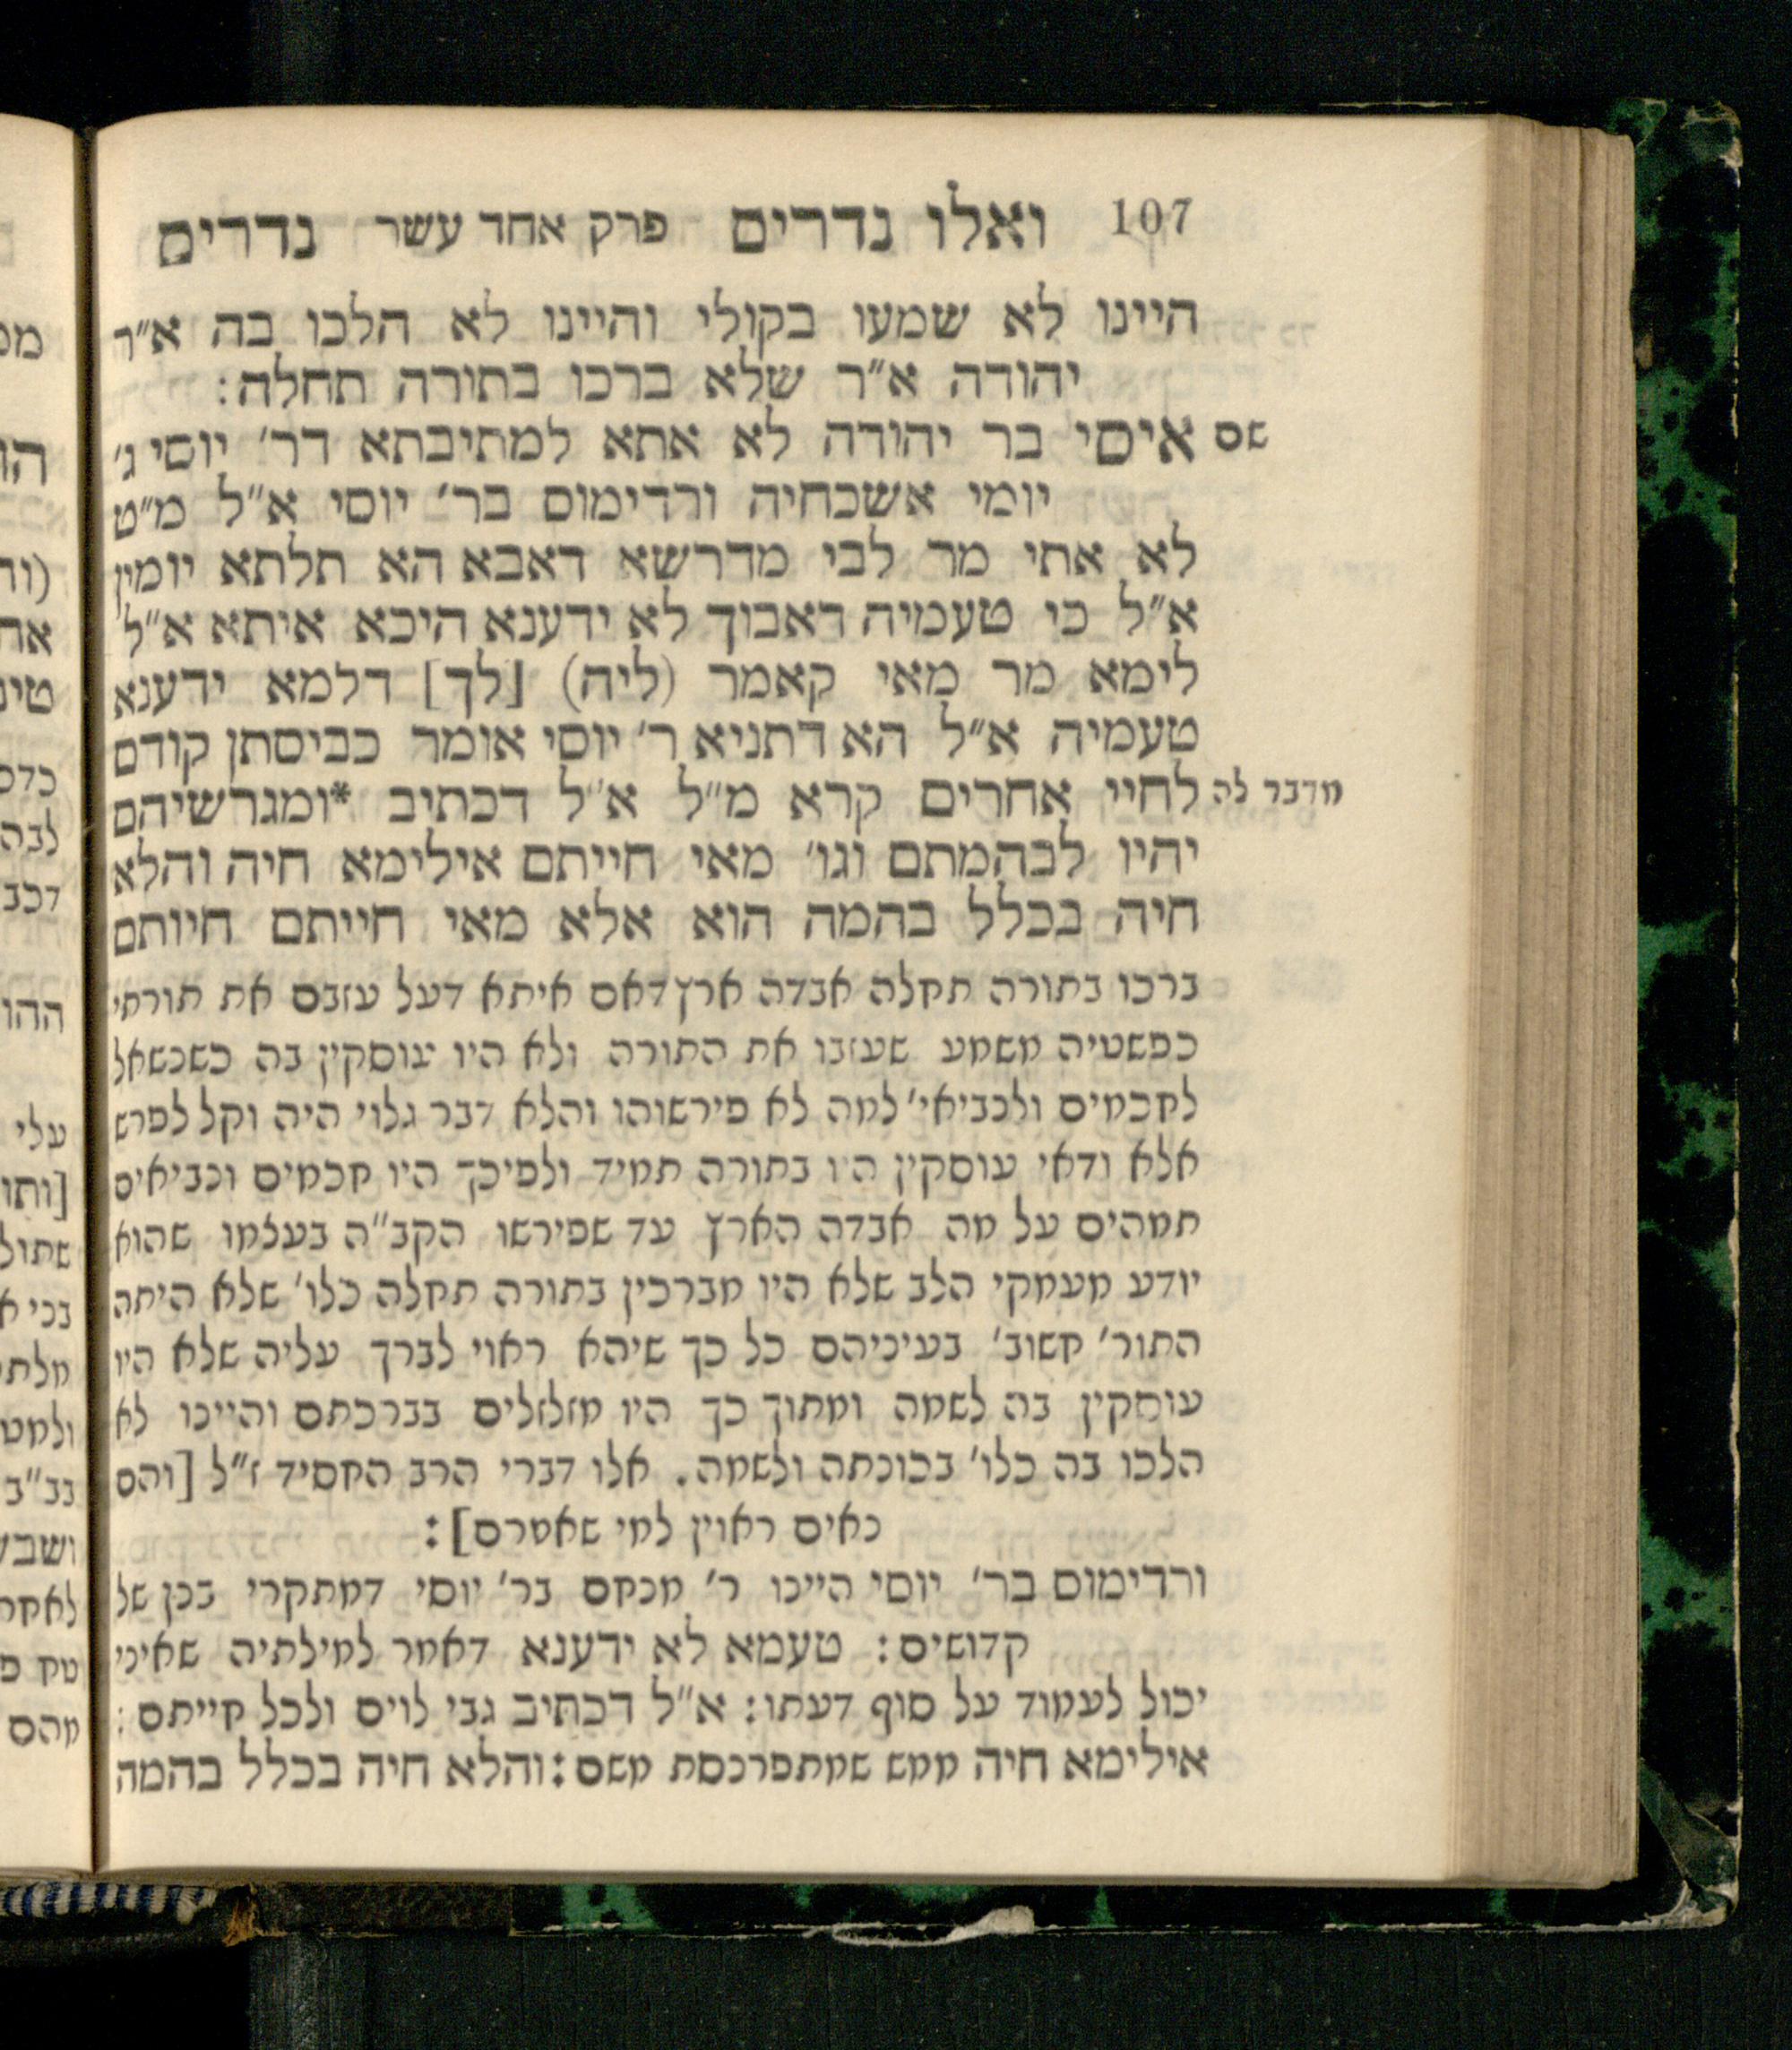 107 ואלו נדרים פרק אחד עשר נדרים
היינו לא שמעו בקולי והיינו לא הלכו בה א״ר
יהודה א״ר שלא ברכו בתורה תחלה:
שם איסי בר יהודה לא אתא למתיבתא דר׳ יוסי ג׳
יומי אשכחיה ורדימוס בר׳ יוסי א״ל מ״ט
לא אתי מר לבי מדרשא דאבא הא תלתא יומין
א״ל כי טעמיה דאבוך לא ידענא היכא איתא א״ל
לימא מר מאי קאמר (ליה) [לך] דלמא ידענא
טעמיה א״ל הא דתניא ר׳ יוסי אומר כביסתן קודם
מדבר לה לחיי אחרים קרא מ״ל א״ל דכתיב *ומגרשיהם
יהיו לבהמתם וגו׳ מאי חייתם אילימא חיה והלא
חיה בכלל בהמה הוא אלא מאי חייתם חיותם
ברכו בתורה תחלה אבדה ארץ דאם איתא דעל עזבם את תורתי
כפשטיה משמע שעזבו את התורה ולא היו עוסקין בה כשנשאל
לחכמים ולנביאי׳ למה לא פירשוהו והלא דבר גלוי היה וקל לפרש
אלא ודאי עוסקין היו בתורה תמיד ולפיכך היו חכמים ונביאים
תמהים על מה אבדה הארץ עד שפירשו הקב״ה בעצמו שהוא
יודע מעמקי הלב שלא היו מברכין בתורה תחלה כלו׳ שלא היתה
התור׳ חשוב׳ בעיניהם כל כך שיהא ראוי לברך עליה שלא היו
עוסקין בה לשמה ומתוך כך היו מזלזלים בברכתם והיינו לא
הלכו בה כלו׳ בכונתה ולשמה. אלו דברי הרב החסיד ז״ל [והם
נאים ראוין למי שאמרם]:
ורדימוס בר׳ יוסי היינו ר׳ מנחם בר׳ יוסי דמתקרי בנן של
קדושים: טעמא לא ידענא דאמר למילתיה שאיני
יכול לעמוד על סוף דעתו: א״ל דכתיב גבי לוים ולכל חייתם:
אילימא חיה ממש שמתפרנסת משם: והלא חיה בכלל בהמה